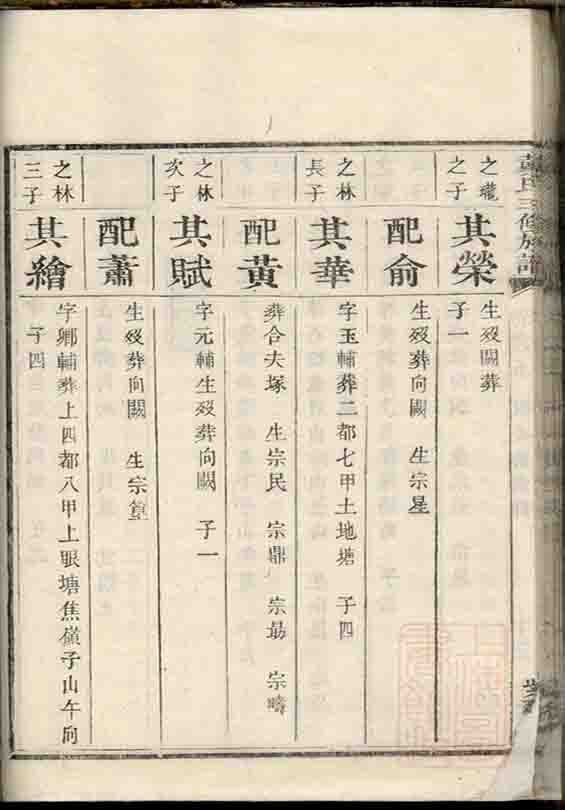 之瓏
之子
其榮
生歿闕葬
子一
配俞
生歿葬向闕 生宗星
之林
長子
其華
字玉輔葬二都七甲土地塘 子四
配黃
葬合夫塚 生宗民 宗鼎 宗勗 宗疇
之林
次子
其賦
字元輔生歿葬向闕 子一
配蕭
生歿葬向闕 生宗篁
之林
三子
其繪
字鄉輔葬上四都八甲上眼塘焦嶺子山午向
子四